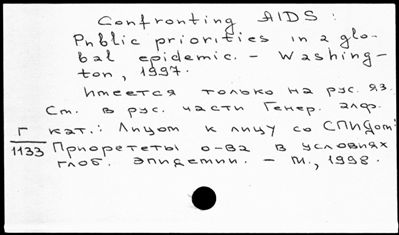 Confronting AIDS :
Public priorities in a glo-
bal epidemic. - Washing-
ton, 1997.
Имеется только на рус. яз.
См. в рус. части Генер. алф.
Г кат.: Лицом к лицу со СПИДом:
1133 Приорететы о-ва в условиях
глоб. эпидемии. - М., 1998.